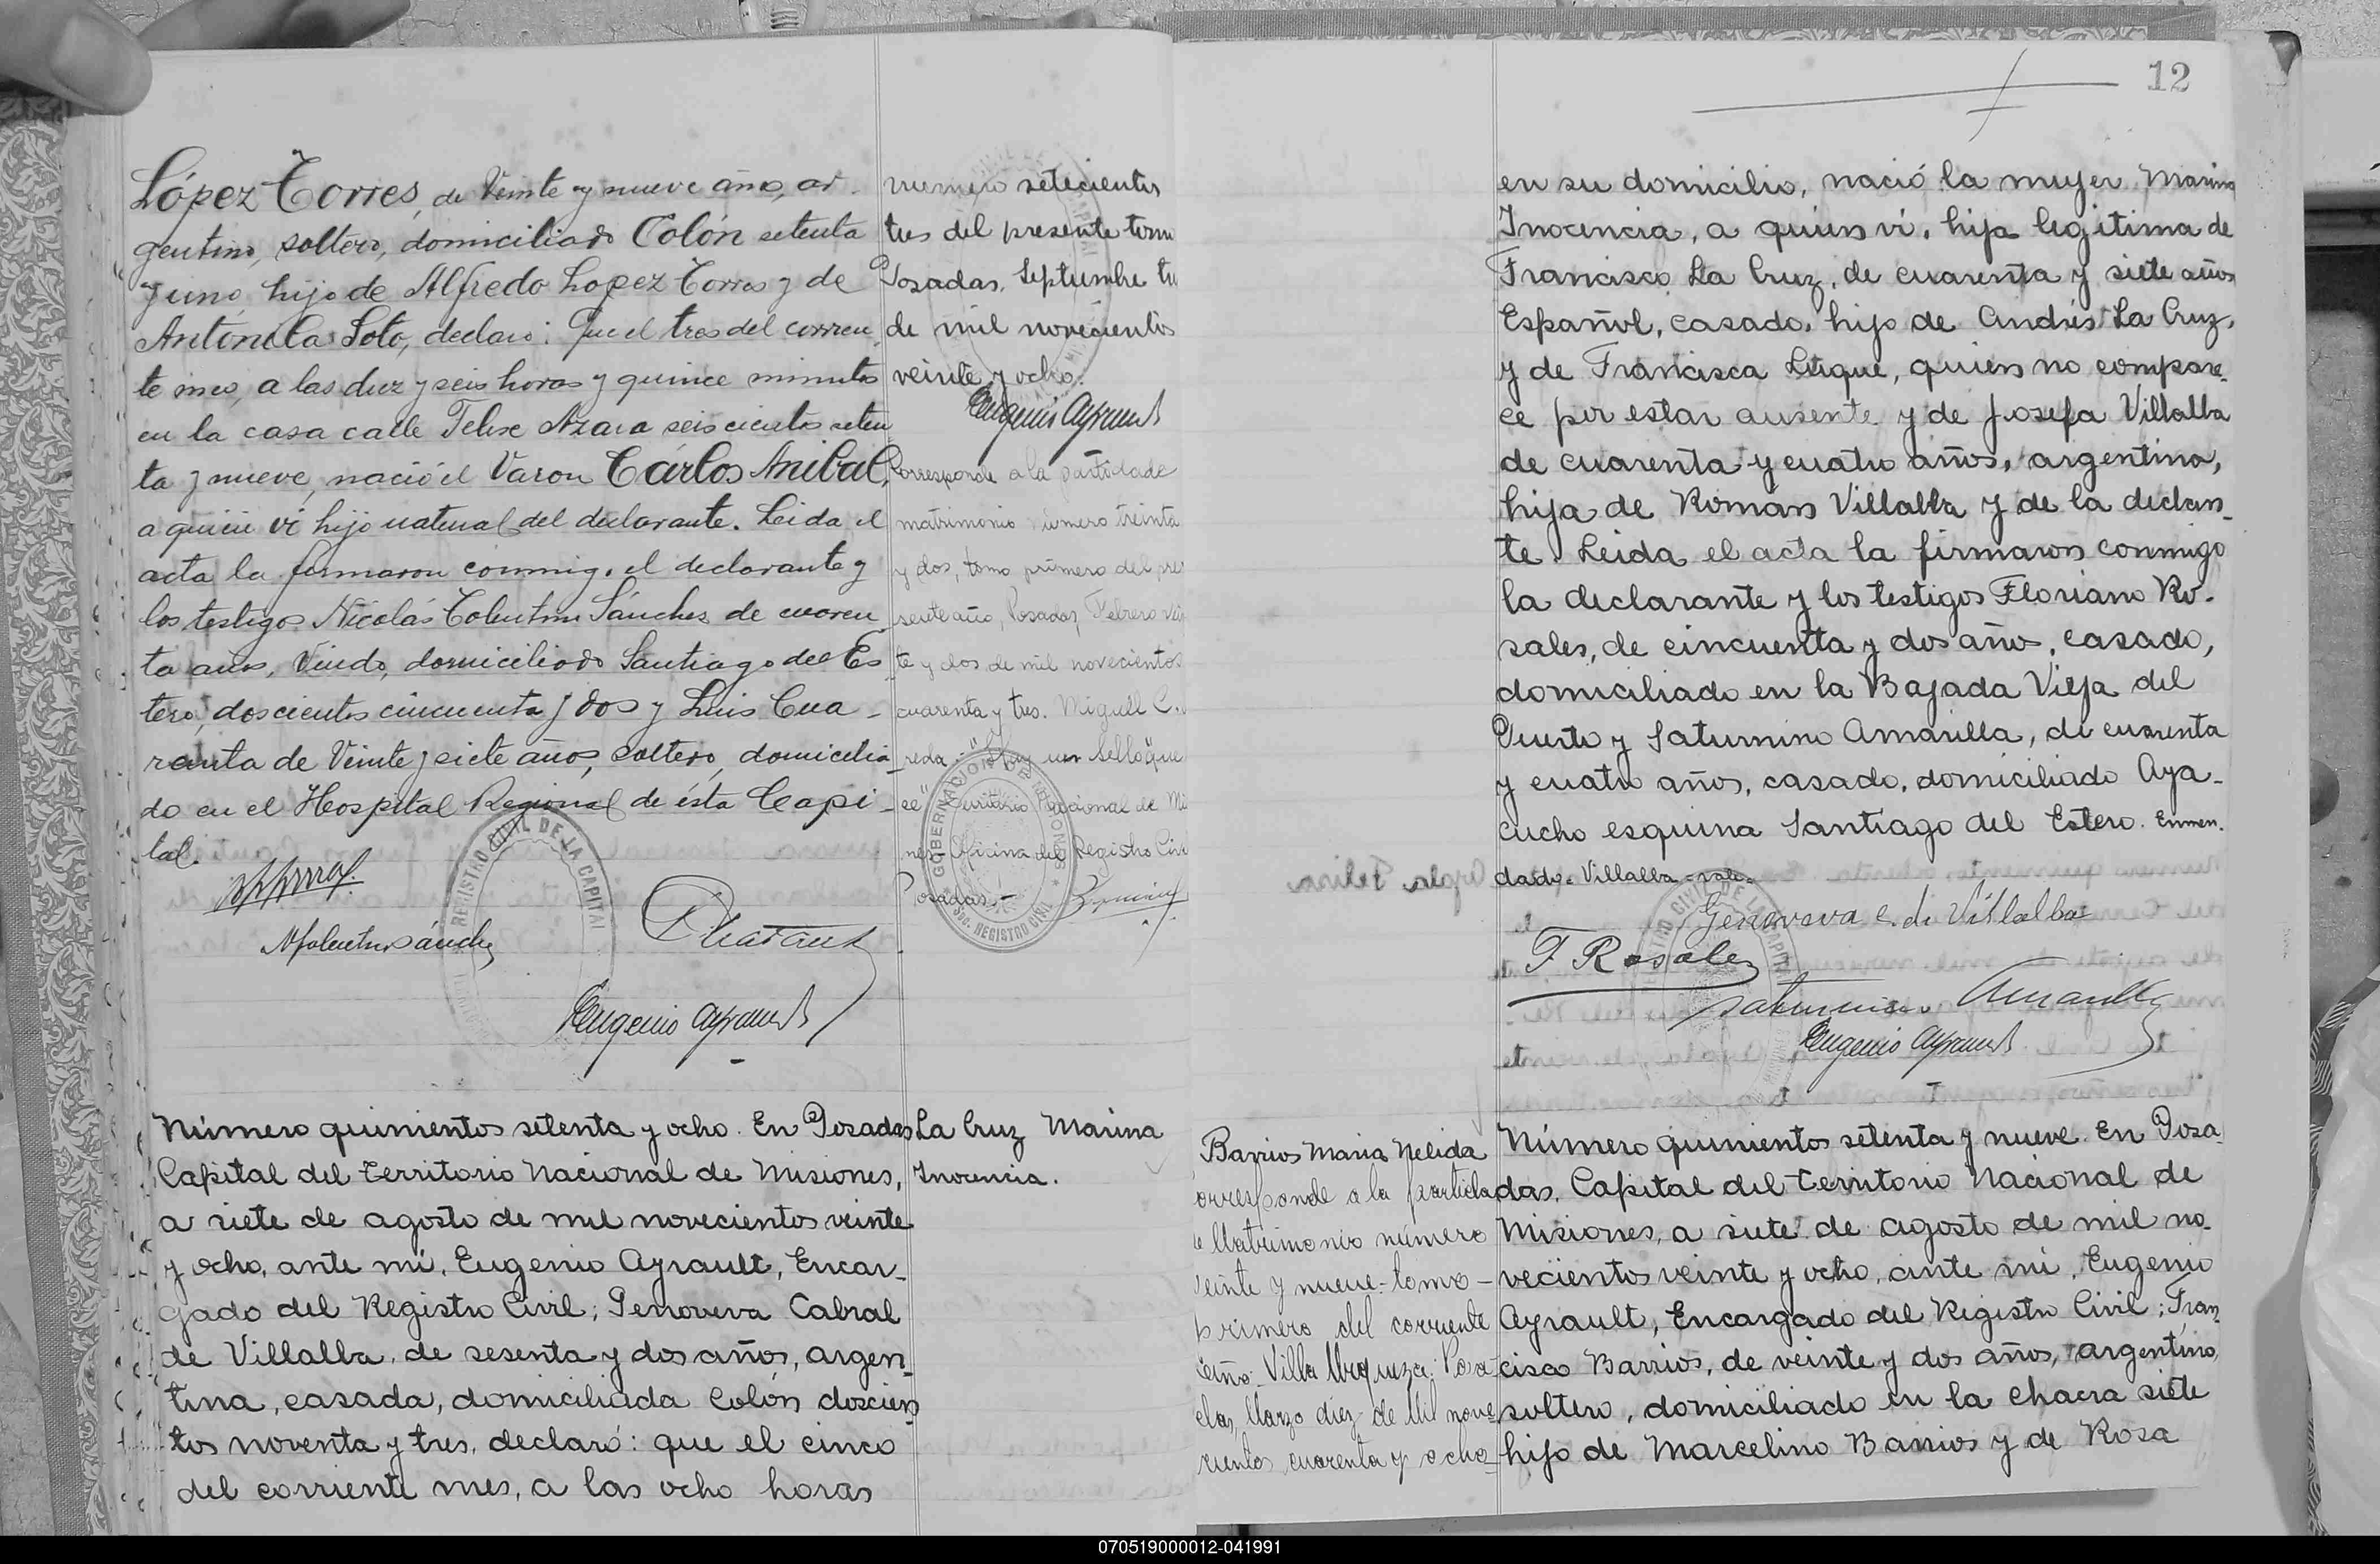 López Torres, de Veinte y nueve años, ar-
gentino, soltero, domiciliado Colón setenta
y uno, hijo de Alfredo Lopez Torres y de
Antonila Soto, declaró: Que el tres del corrien
te mes, a las diez y seis horas y quince minutos
en la casa calle Felix Azara seiscientos seten
ta y nueve, nació el Varon Cárlos Anibal,
a quien vi hijo natural del declarante. Leida el
acta la firmaron conmigo el declarante y
los testigos Nicolás Tolentino Sánchez de cuaren
ta años, Viudo, domiciliado Santiago del Es
tero, doscientos cincuenta y dos y Luis Cua-
ranta de Veinte y siete años, soltero, domicilia
do en el Hospital Regional de ésta Capi-
tal.
REGISTRO CIVIL DE LA CAPITAL
Eugenio Ayrault
número setecientos
tres del presente tomo
Posadas, Septiembre
de mil novecientos
veinte y ocho.
Eugenio Ayrault
Corresponde a la partida de
matrimonio número treinta
y dos, tomo primero del pre
sente año, Posadas, Febrero vein
te y dos de mil novecientos
cuarenta y tres. Miguel C.
reda. "Hay un sello que
"Territorio Nacional de Mi
nes Oficina del Registro Civil
Posadas.-
GOBERNACION DE MISIONES
REGISTRO CIVIL
Número quinientos setenta y ocho. En Posadas
Capital del Territorio Nacional de Misiones,
a siete de agosto de mil novecientos veinte
y ocho, ante mí, Eugenio Ayrault, Encar-
gado del Registro Civil; Genoveva Cabral
de Villalba, de sesenta y dos años, argen-
tina, casada, domiciliada Colón doscien
tos noventa y tres, declaró: que el cinco
del corriente mes, a las ocho horas
La Cruz Marina
Inocencia.
12
en su domicilio, nació la mujer Marina
Inocencia, a quien vi, hija legitima de
Francisco La Cruz, de cuarenta y siete años
Español, casado, hijo de Andrés La Cruz,
y de Francisca Luque, quien no compare-
ce por estar ausente y de Josefa Villalba
de cuarenta y cuatro años, argentina,
hija de Román Villalba y de la declaran-
te. Leida el acta la firmaron conmigo
la declarante y los testigos Floriano Ro-
sales, de cincuenta y dos años, casado,
domiciliado en la Bajada Vieja del
Puerto y Saturnino Amarilla, de cuarenta
y cuatro años, casado, domiciliado Aya-
cucho esquina Santiago del Estero. Enmen-
dado. Villalba-vale.
Genoveva C. de Villalba
F Rosales
Saturnino Amarilla
Eugenio Ayrault
Barrios Maria Nelida
orresponde a la partida
e Matrimonio número
veinte y nueve-tomo-
primero del corriente
año- Villa Urquiza: Posa-
das, Marzo diez de Mil nove-
cientos cuarenta y ocho-
Número quinientos setenta y nueve. En Posa-
das, Capital del Territorio Nacional de
Misiones, a siete de agosto de mil no-
vecientos veinte y ocho, ante mí, Eugenio
Ayrault, Encargado del Registro Civil; Fran
cisco Barrios, de veinte y dos años, argentino,
soltero, domiciliado en la chacra siete
hijo de Marcelino Barrios y de Rosa
070519000012-041991